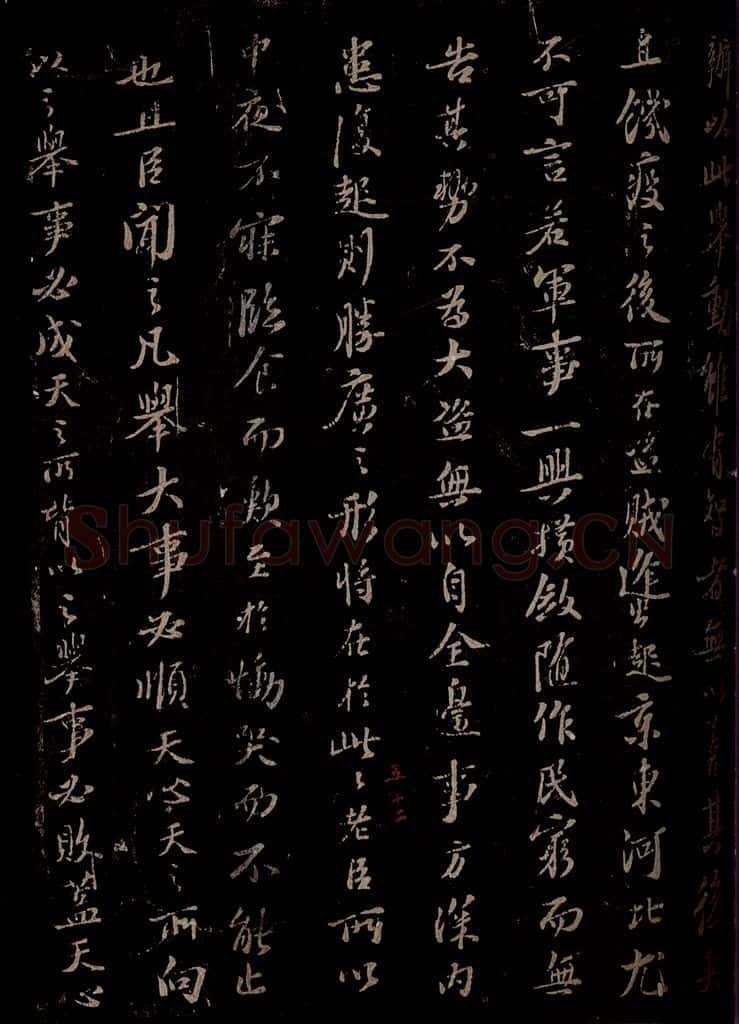 辦以此舉動雖有智者無以善其後矣
且饑疫之後所在盜賊蜂起京東河北尤
不可言若軍事一興橫斂隨作民窮而無
告其勢不為大盜無以自全邊事方深內
患復起則勝廣之形將在於此〻老臣所以
中夜不寐臨食而歎至於慟哭而不能止
也且臣聞之凡舉大事必順天心天之所向
以之舉事必成天之所背以之舉事必敗蓋天心
五十二
Shufawang.CN